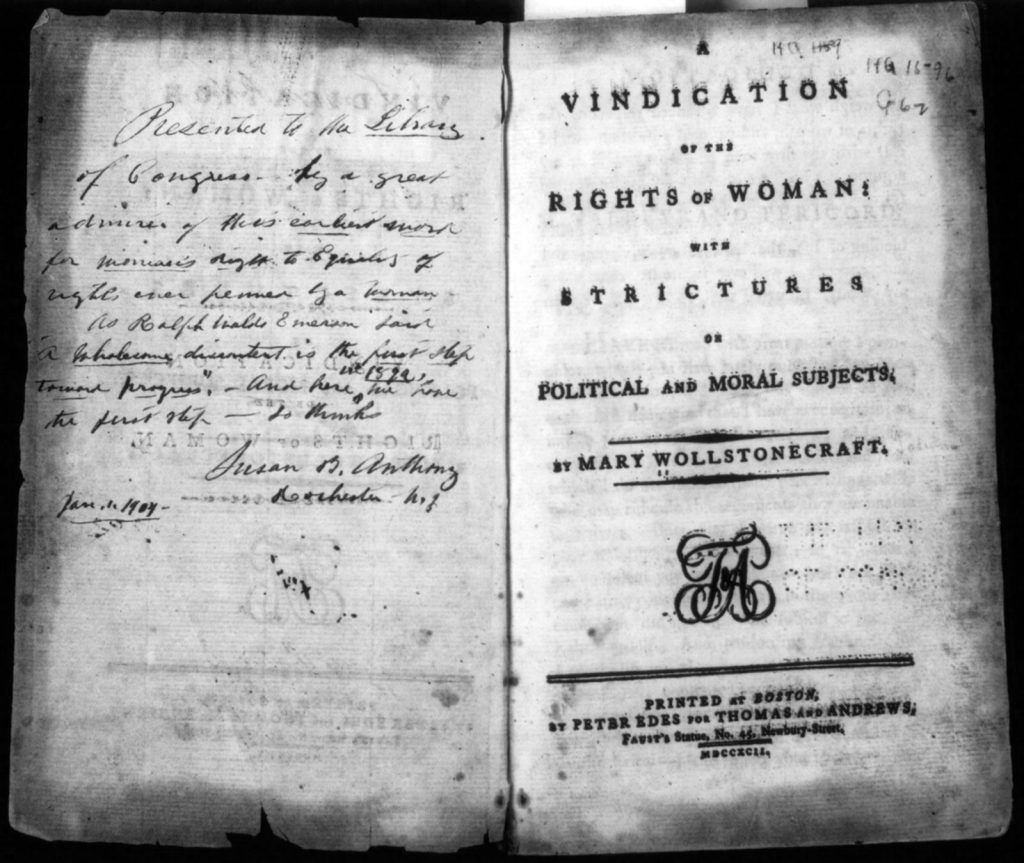 Presented to the Library
of Congress - by a great
admirer of this earliest work
for woman's right to Equality of
rights ever penned by a woman
As Ralph Waldo Emerson said
"A wholesome discontent is the first step
toward progress". - And here, in 1892, we have
the first step - so thinks
Susan B. Anthony
Rochester - N.Y
Jan. 1. 1904 -
HQ 1596
G62
A
VINDICATION
OF THE
RIGHTS OF WOMAN:
WITH
STRICTURES
ON
POLITICAL AND MORAL SUBJECTS.
BY MARY WOLLSTONECRAFT.
T&A
PRINTED AT BOSTON,
BY PETER EDES FOR THOMAS AND ANDREWS,
FAUST'S Statue, No. 45, Newbury-Street,
MDCCXCII.